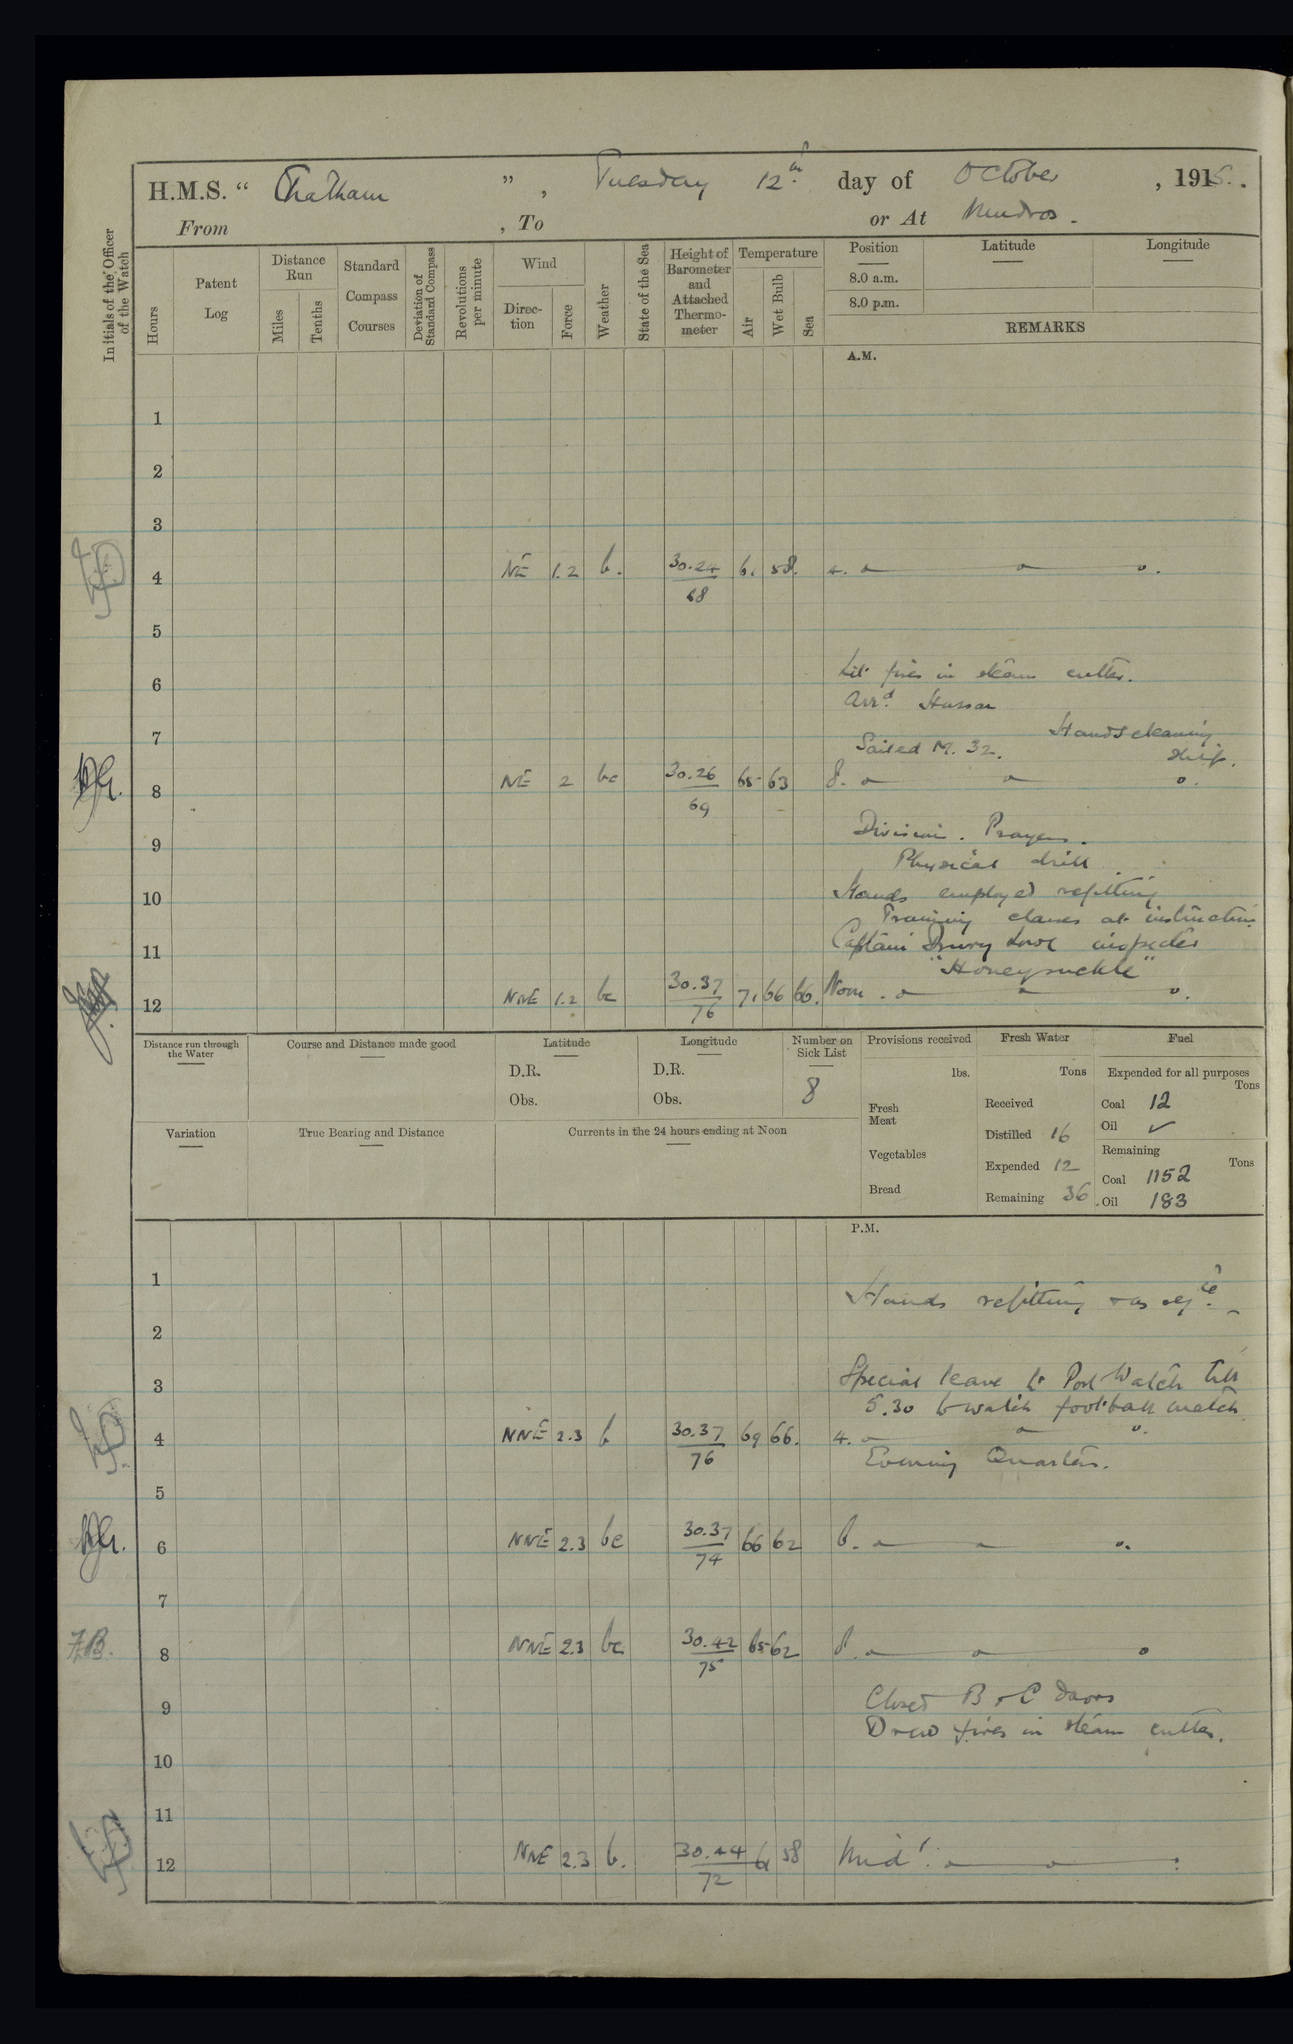 H.M.S. “ Chatham ” , Tuesday 12th day of October , 1915.
From , To or At Mudros.
Initials of the Officer of the Watch
Hours
Patent Log
Distance Run
Miles
Tenths
Standard Compass Courses
Deviation of Standard Compass
Revolutions per minute
Wind
Direction
Force
Weather
State of the Sea
Height of Barometer and Attached Thermometer
Temperature
Air
Wet Bulb
Sea
Position Latitude Longitude
8.0 a.m.
8.0 p.m.
REMARKS
A.M.
1
2
3
4 NE 1.2 b. 30.24 68 61 58. 4.
5
6 Lit fires in steam cutter.
Arrd. Hussar
7 Hands cleaning
Sailed M. 32. Ship.
8 NE 2 bc 30.26 69 65 63 8.
Division. Prayers.
9
Physical drill
10 Hands employed refitting
Training classes at instruction
11 Captain Drury Lowe inspected
"Honeysuckle"
12 NNE 1.2 bc 30.37 76 71 66 66. Noon.
Distance run through the Water
Course and Distance made good
Latitude
D.R.
Obs.
Longitude
D.R.
Obs.
Number on Sick List
8
Provisions received
lbs.
Fresh Meat
Vegetables
Bread
Fresh Water
Tons
Received
Distilled 16
Expended 12
Remaining 36
Fuel
Expended for all purposes
Tons
Coal 12
Oil ✓
Remaining
Tons
Coal 1152
Oil 183
Variation
True Bearing and Distance
Currents in the 24 hours ending at Noon
P.M.
1
Hands refitting & as reqte.
2
3 Special leave to Port Watch till
5.30 to watch football match
4 NNE 2.3 b 30.37 76 69 66. 4.
Evening Quarters.
5
6 NNE 2.3 bc 30.37 74 66 62 6.
7
FB. 8 NNE 2.3 bc 30.42 75 65 62 8.
9 Closed B & C doors
Drew fires in steam cutter.
10
11
12 NNE 2.3 b. 30.44 72 61 58 Midt.